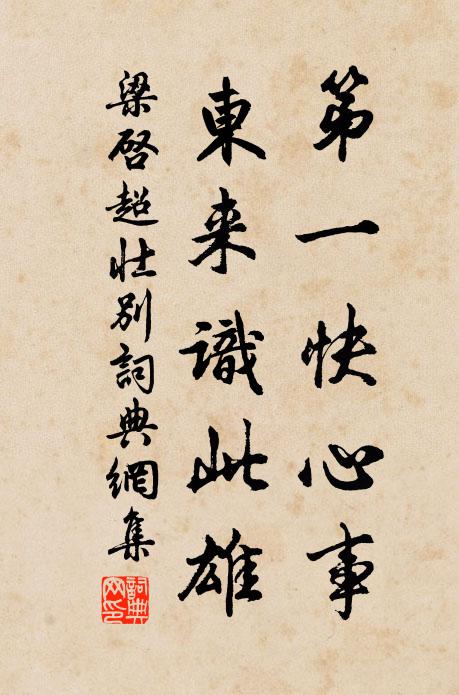 第一快心事
東来識此雄
梁啓超壯別詞典網集
詞典網印